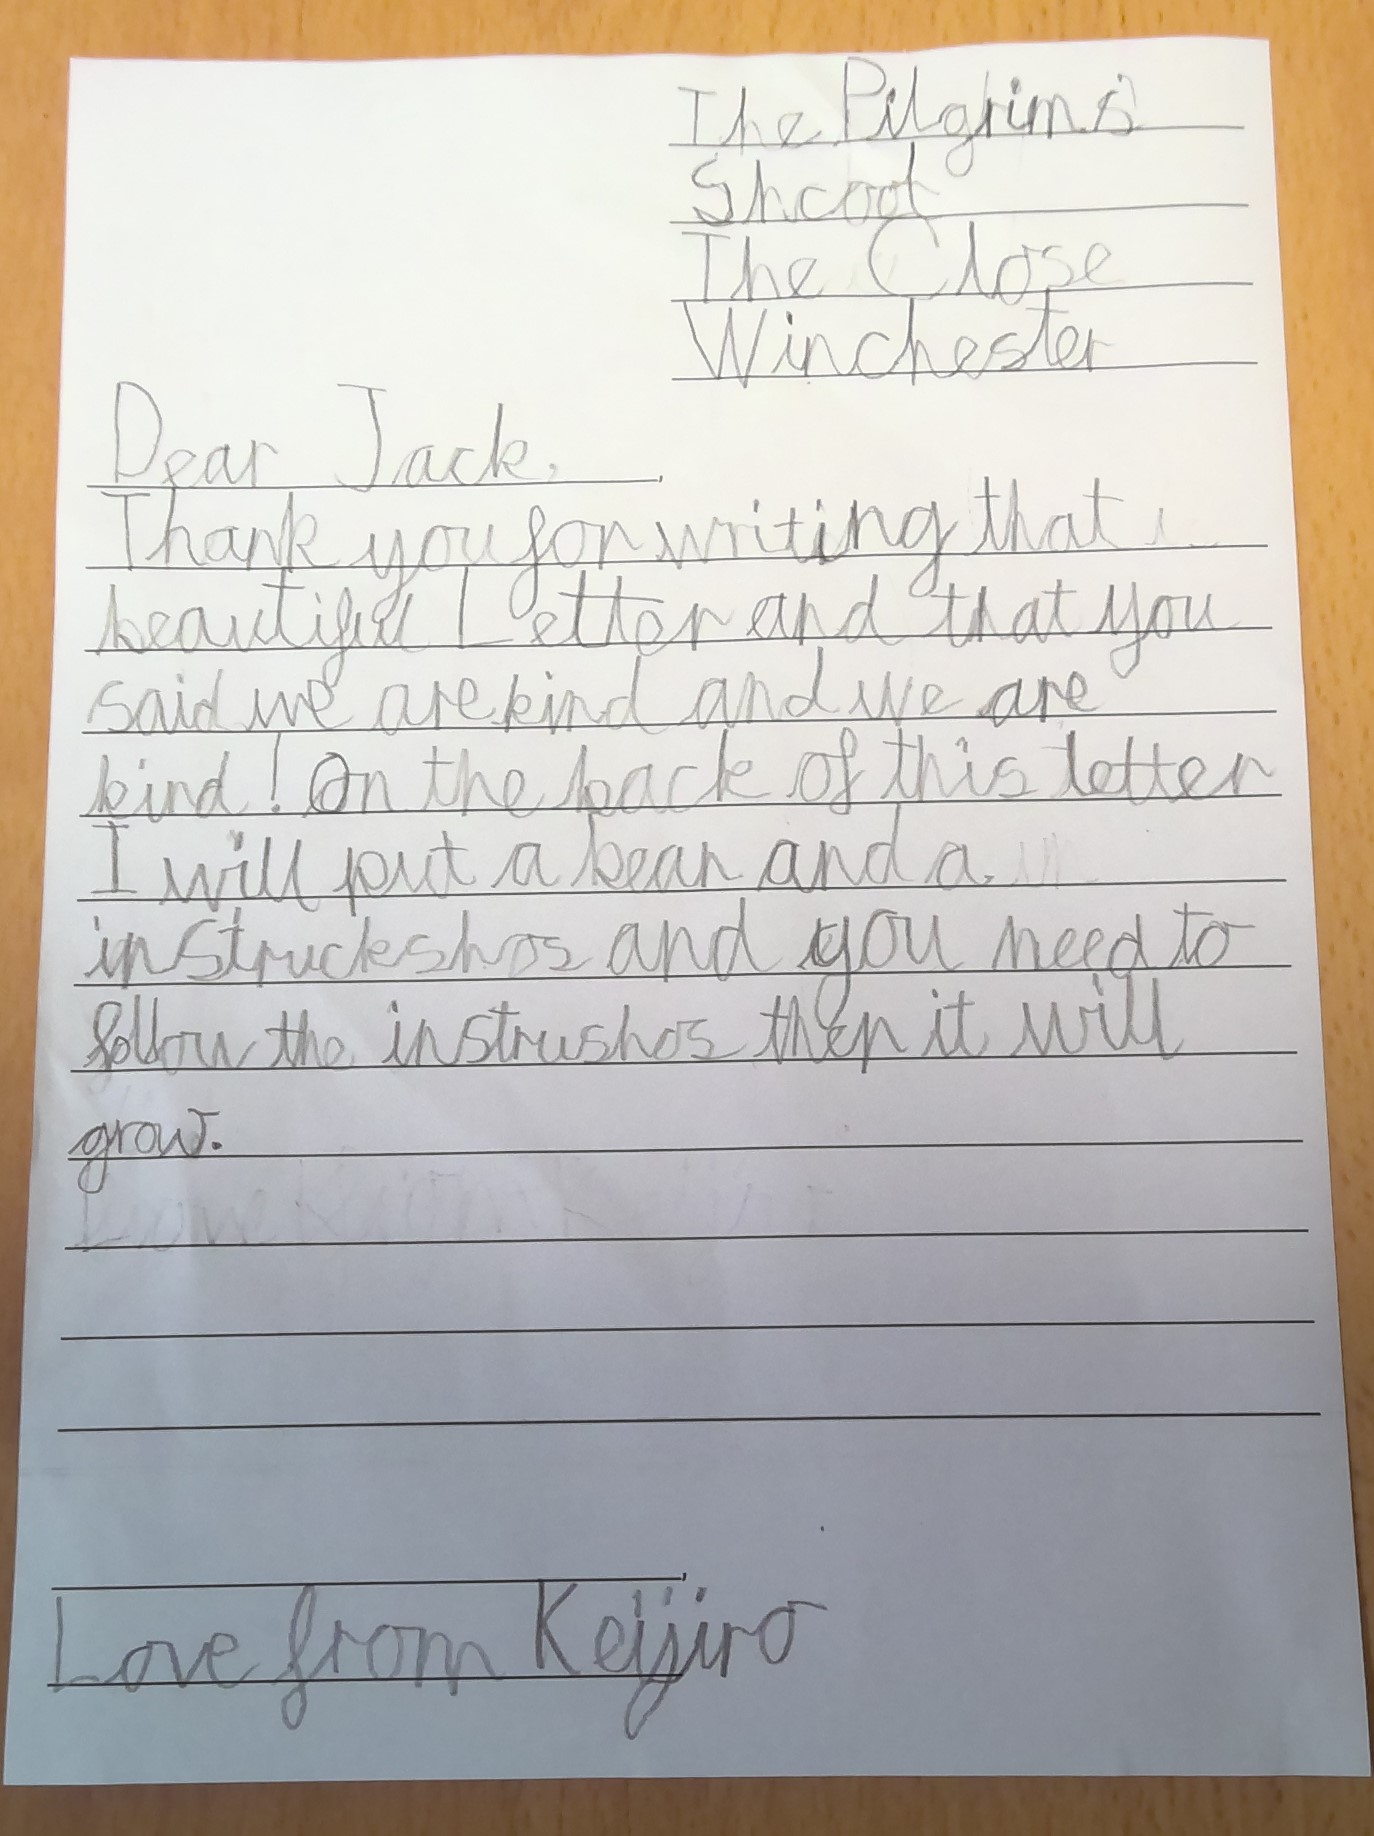 The Pilgrims'
Shcool
The Close
Winchester
Dear Jack,
Thank you for writing that
beautiful Letter and that you
said we are kind and we are
kind! On the back of this letter
I will put a bean and a
instruckshos and you need to
follow the instrushos then it will
grow.
Love from Keijiro